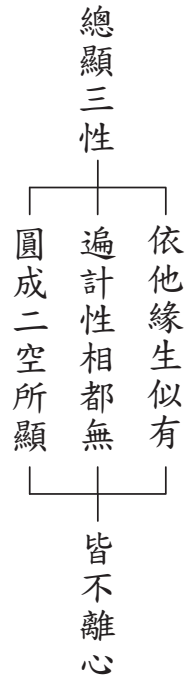 總顯三性
依他緣生似有
遍計性相都無
圓成二空所顯
皆不離心